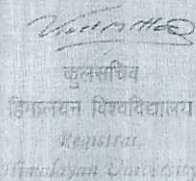 कुलसचिव
हिमालयन विश्वविद्यालय
Registrar
Himalayan University